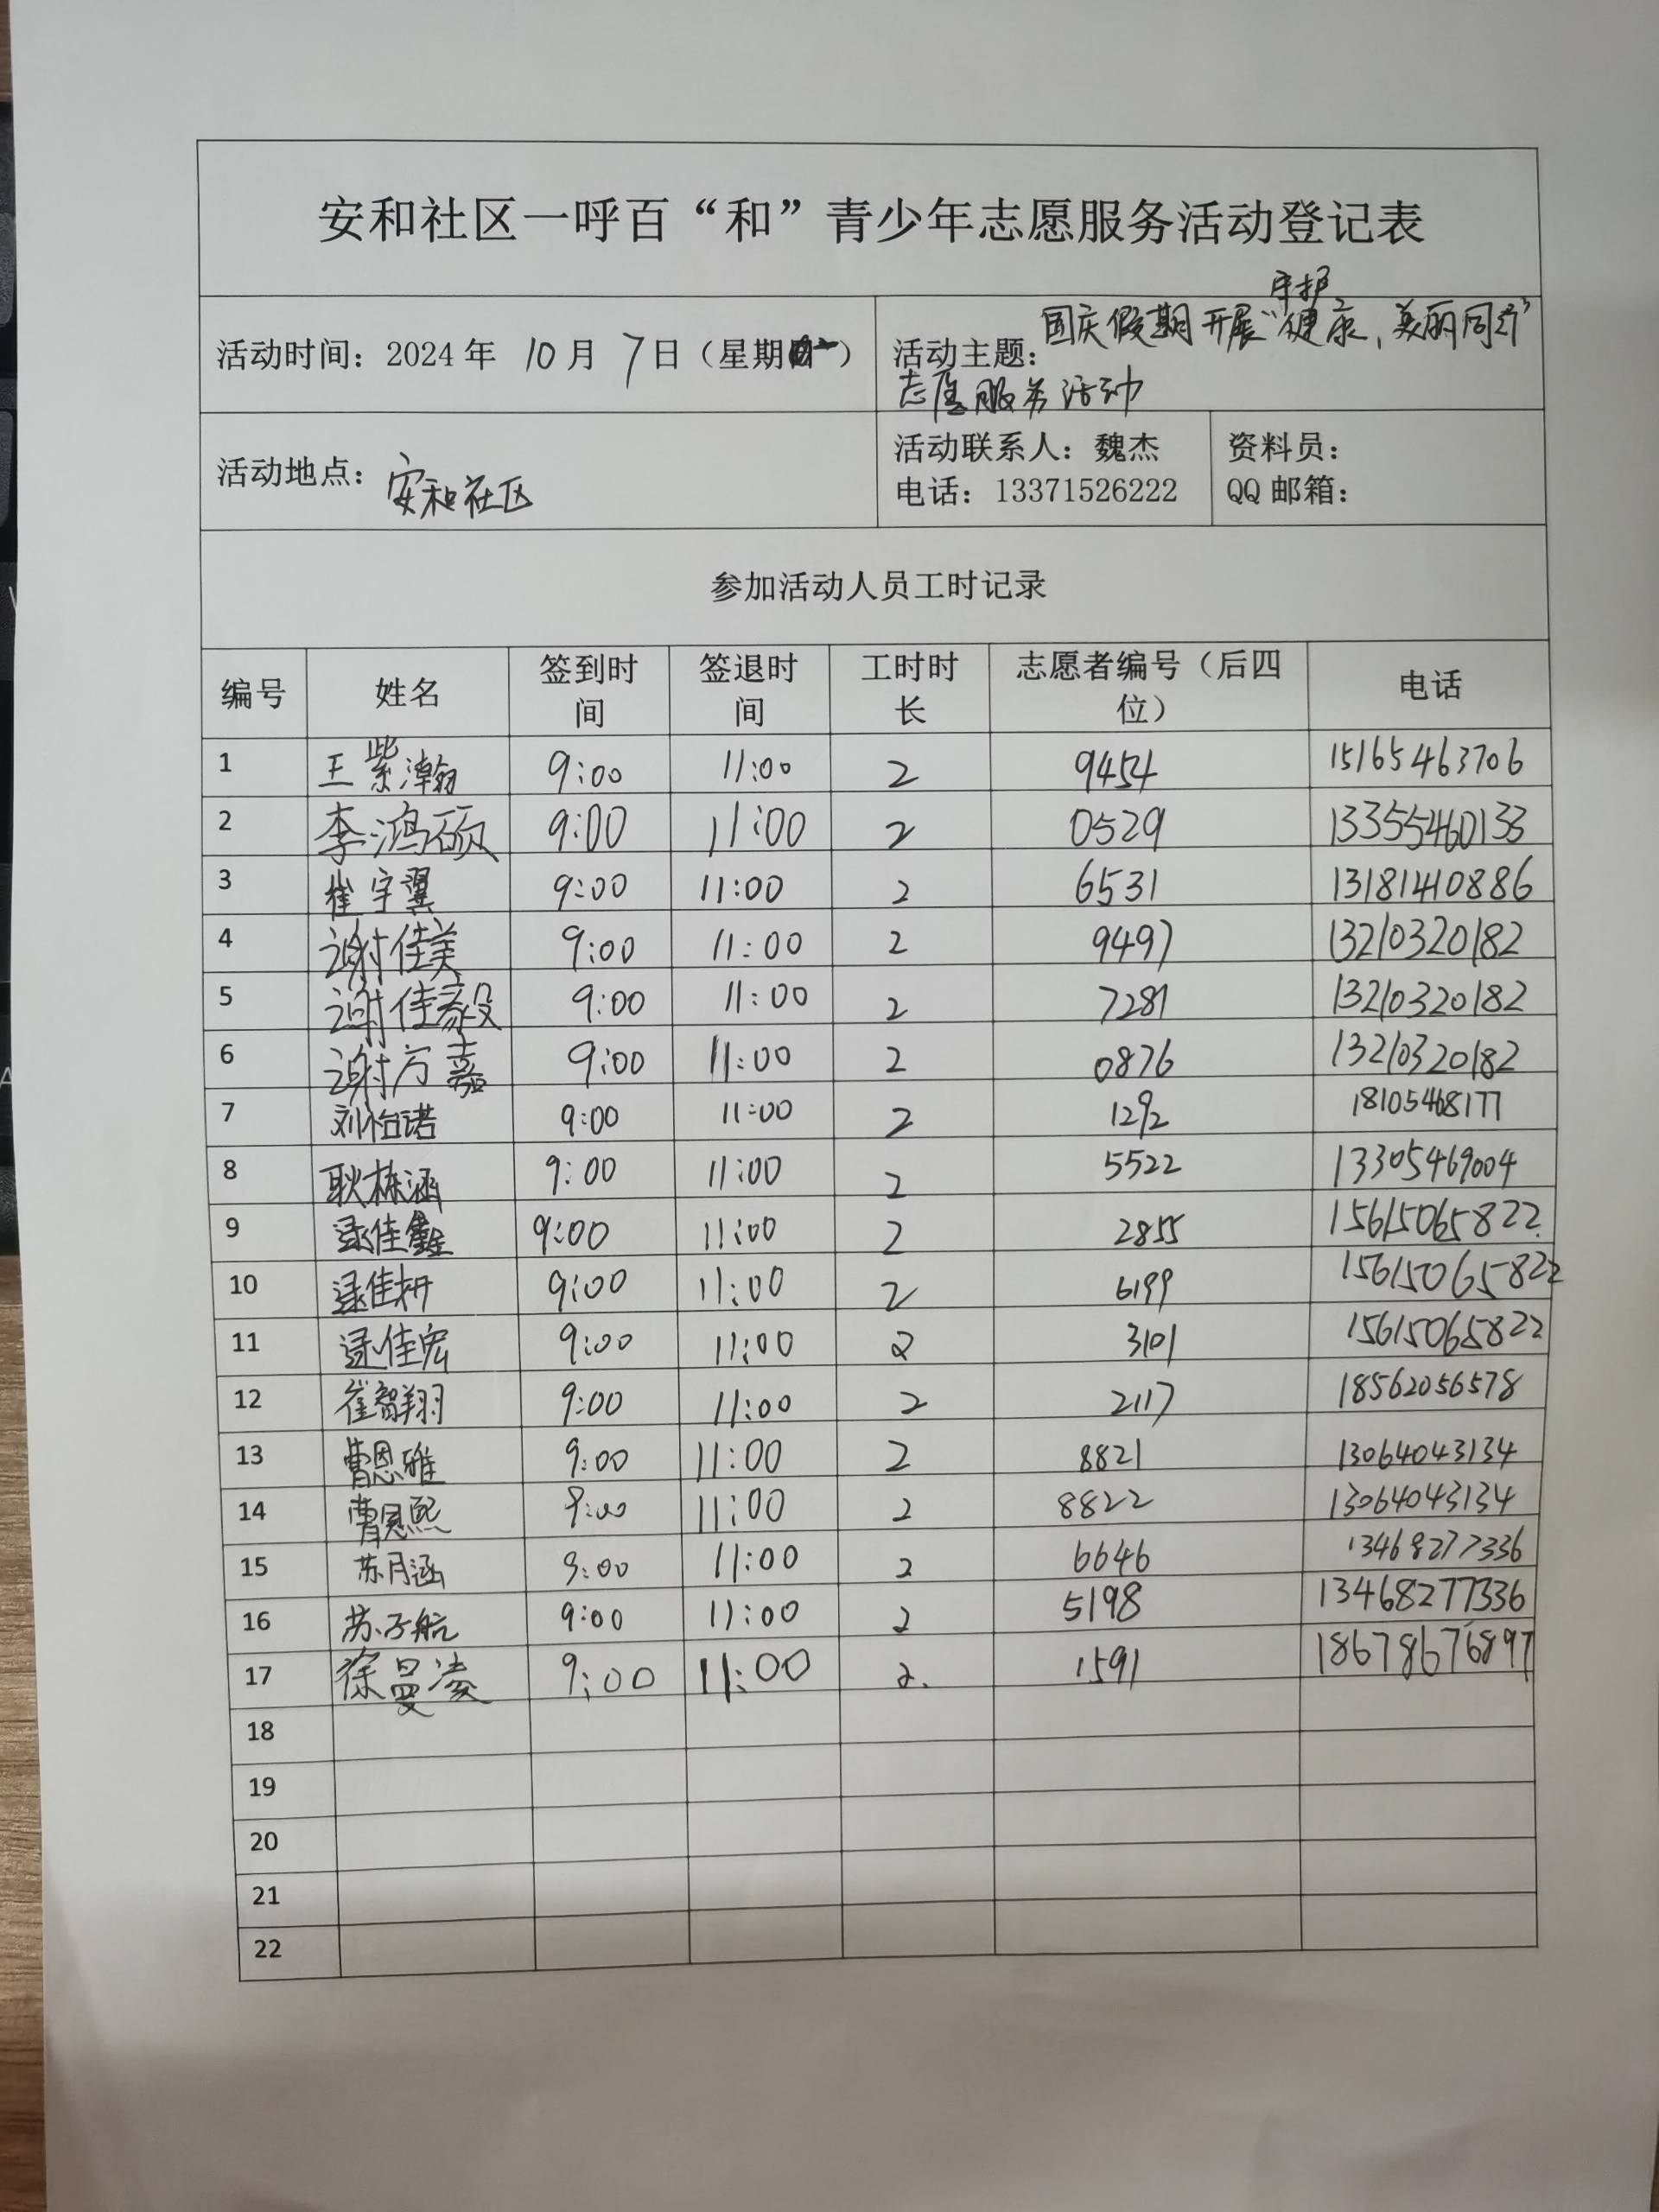 安和社区一呼百“和”青少年志愿服务活动登记表
活动时间：2024年 10月 7日（星期一）
活动主题：国庆假期开展“守护健康，美丽同行”
志愿服务活动
活动地点：安和社区
活动联系人：魏杰
电话：13371526222
资料员：
QQ邮箱：
参加活动人员工时记录
编号 姓名 签到时间 签退时间 工时时长 志愿者编号（后四位） 电话
1 王紫瀚 9:00 11:00 2 9454 15165463706
2 李鸿硕 9:00 11:00 2 0529 13355460133
3 崔宇翼 9:00 11:00 2 6531 13181410886
4 谢佳美 9:00 11:00 2 9497 13210320182
5 谢佳毅 9:00 11:00 2 7281 13210320182
6 谢方嘉 9:00 11:00 2 0876 13210320182
7 刘怡诺 9:00 11:00 2 1292 18105468177
8 耿栋涵 9:00 11:00 2 5522 13305469004
9 逯佳鑫 9:00 11:00 2 2855 15615065822
10 逯佳妍 9:00 11:00 2 6199 15615065822
11 逯佳宏 9:00 11:00 2 3101 15615065822
12 崔智翔 9:00 11:00 2 2117 18562056578
13 曹恩雅 9:00 11:00 2 8821 13064043134
14 曹恩熙 9:00 11:00 2 8822 13064043134
15 苏月涵 9:00 11:00 2 6646 13468277336
16 苏子航 9:00 11:00 2 5198 13468277336
17 徐曼凌 9:00 11:00 2. 1591 18678676897
18
19
20
21
22